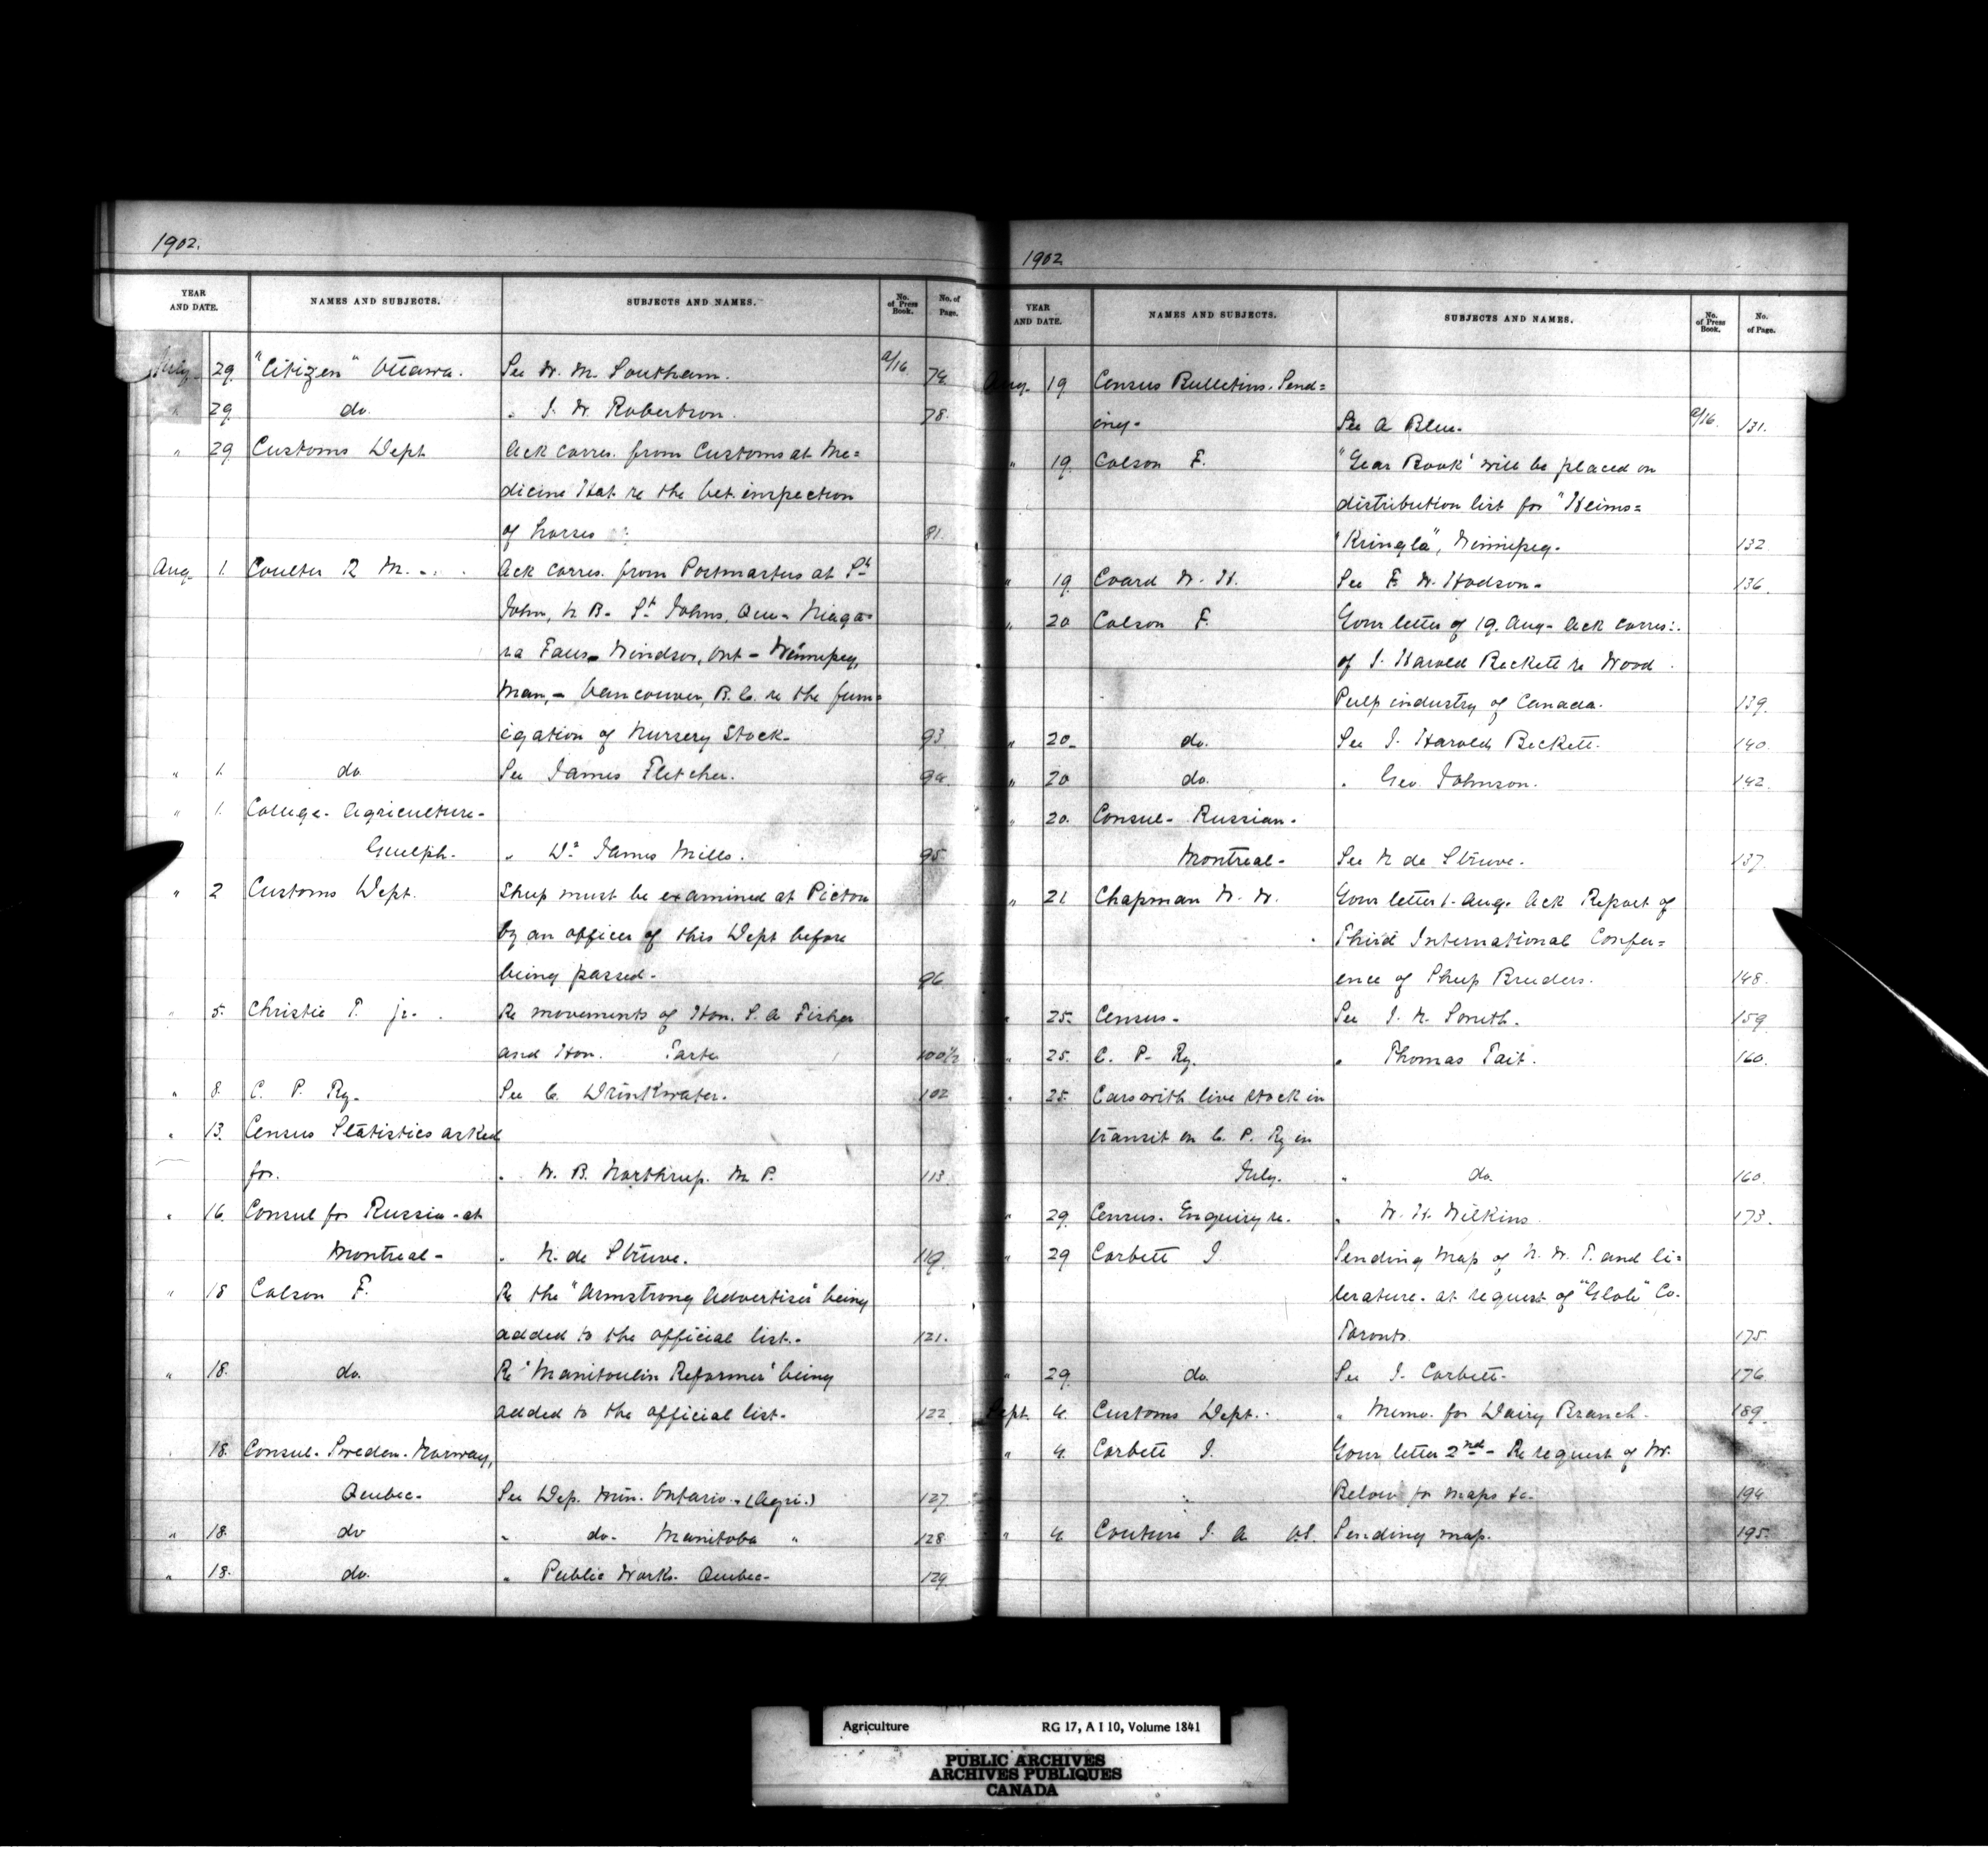 1902.
YEAR AND DATE. NAMES AND SUBJECTS. SUBJECTS AND NAMES. No. of Press Book. No. of Page.
July 29. "Citizen" Ottawa. See W. M. Southam. a/16. 74.
" 29. do. " J. W. Robertson. 78.
" 29 Customs Dept Ack corres. from Customs at Me=
dicine Hat re the Vet. inspection
of horses 81.
Aug. 1. Coulter R M. Ack corres. from Postmasters at St
John, N B- St Johns, Que- Niaga=
ra Falls- Windsor, Ont- Winnipeg,
Man,- Vancouver, B. C. re the fum=
igation of Nursery Stock- 93
" 1. do. See James Fletcher. 94.
" 1. College- Agriculture-
Guelph. " Dr James Mills. 95.
" 2 Customs Dept. Sheep must be examined at Picton
by an officer of this Dept before
being passed- 96
" 5. Christie P. jr. Re movements of Hon. S. A Fisher
and Hon. Tarte 100½
" 8. C. P. Ry- See C. Drinkwater. 102
" 13. Census Statistics asked
for. " W. B. Northrup. M. P. 113.
" 16. Consul for Russia-at
Montreal- " N. de Struve. 119.
" 18 Colson F. Re the "Armstrong Advertiser" being
added to the official list- 121.
" 18. do. Re "Manitoulin Reformer" being
added to the official list- 122
18. Consul- Sweden- Norway,
Quebec- See Dep. Min. Ontario. (Agri.) 127
" 18. do " do- Manitoba " 128
" 18. do. " Public Works. Quebec- 129
1902
YEAR AND DATE. NAMES AND SUBJECTS. SUBJECTS AND NAMES. No. of Press Book. No. of Page.
Aug. 19 Census Bulletins. Send=
ing- See A Blue- a/16. 131.
" 19. Colson F. "Year Book" will be placed on
distribution list for "Heims=
"Kringla", Winnipeg- 132
" 19. Coard W. H. See F. W. Hodson- 136.
" 20 Colson F. Your letter of 19. Aug- Ack corres:
of J. Harold Beckett re Wood
Pulp industry of Canada. 139.
" 20. do. See J. Harold Beckett. 140.
" 20 do. " Geo. Johnson. 142.
" 20. Consul- Russian-
Montreal- See N de Struve. 137.
" 21 Chapman W. W. Your letter 1- Aug. Ack Report of
Third International Confer=
ence of Sheep Breeders. 148.
" 25. Census- See J. N. Smith. 159
" 25. C. P- Ry. " Thomas Tait. 160.
" 25. Cars with live stock in
transit on C. P. Ry in
July. " do. 160.
" 29. Census- Enquiry re. " W. H. Wilkins 173.
" 29 Corbett J. Sending Map of N. W. T. and li=
terature- at request of "Globe" Co.
Toronto. 175.
" 29. do. See J. Corbett- 176.
Sept. 4. Customs Dept. " Memo. for Dairy Branch. 189.
" 4. Corbett J. Your letter 2nd- Re request of W.
Below for maps &c- 194
" 4 Couture J. A Sending map. 195.
Agriculture RG 17, A I 10, Volume 1841
PUBLIC ARCHIVES
ARCHIVES PUBLIQUES
CANADA